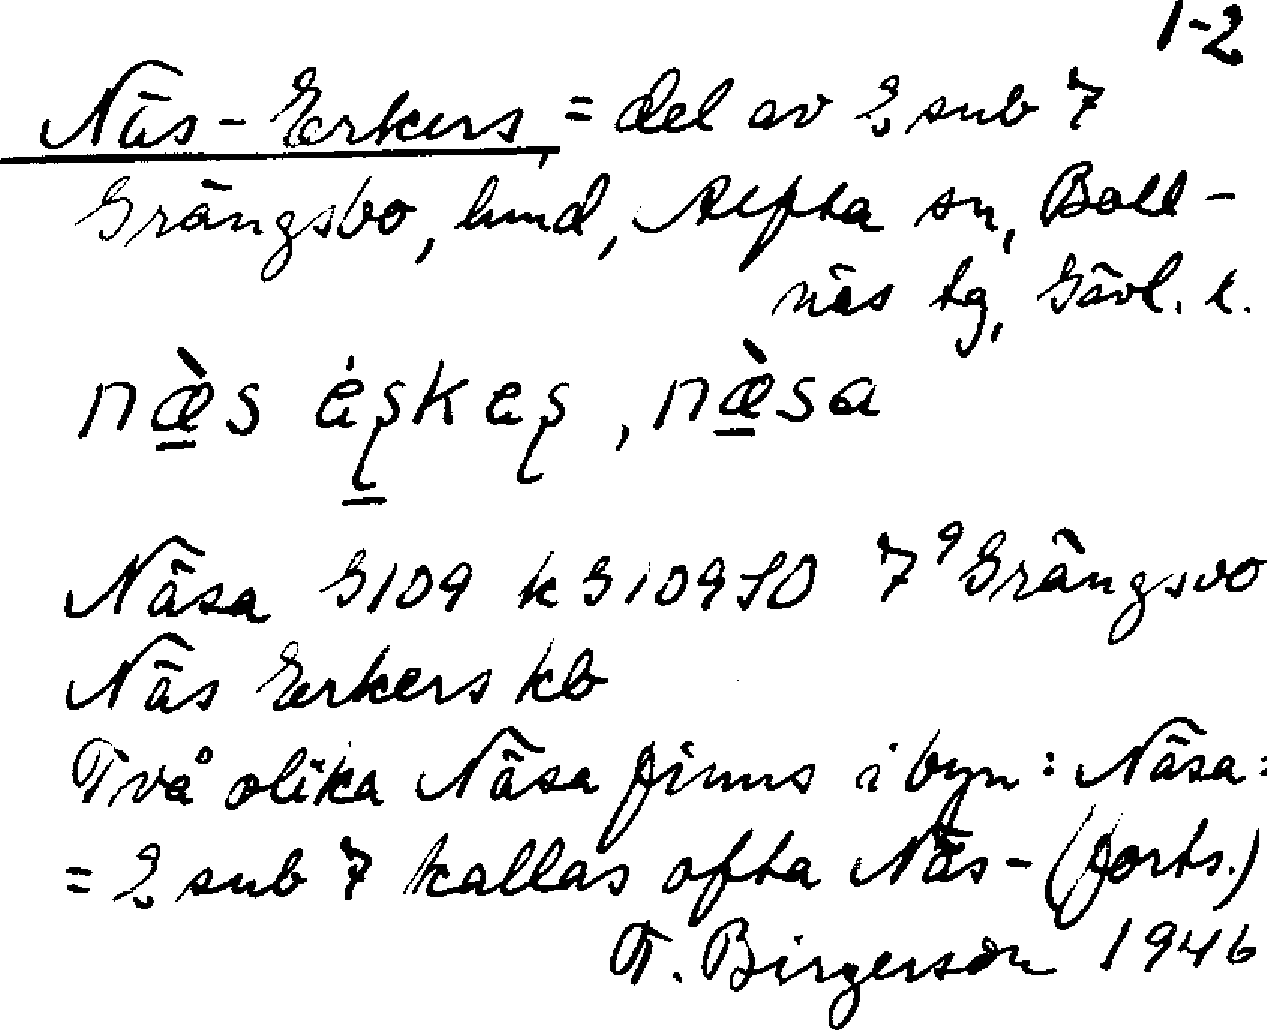 1-2
Näs-Erkers, = del av 2 sub 7
Grängsbo, hmd, Alfta sn, Boll-
näs tg, Gävl. l.
Näsa G109 k G109 SO 7⁹ Grängsbo
Näs Erkers kb
Två olika Näsa finns i byn: Näsa:
= 2 sub 7 kallas ofta Näs- (forts.)
T. Birgerson 1946